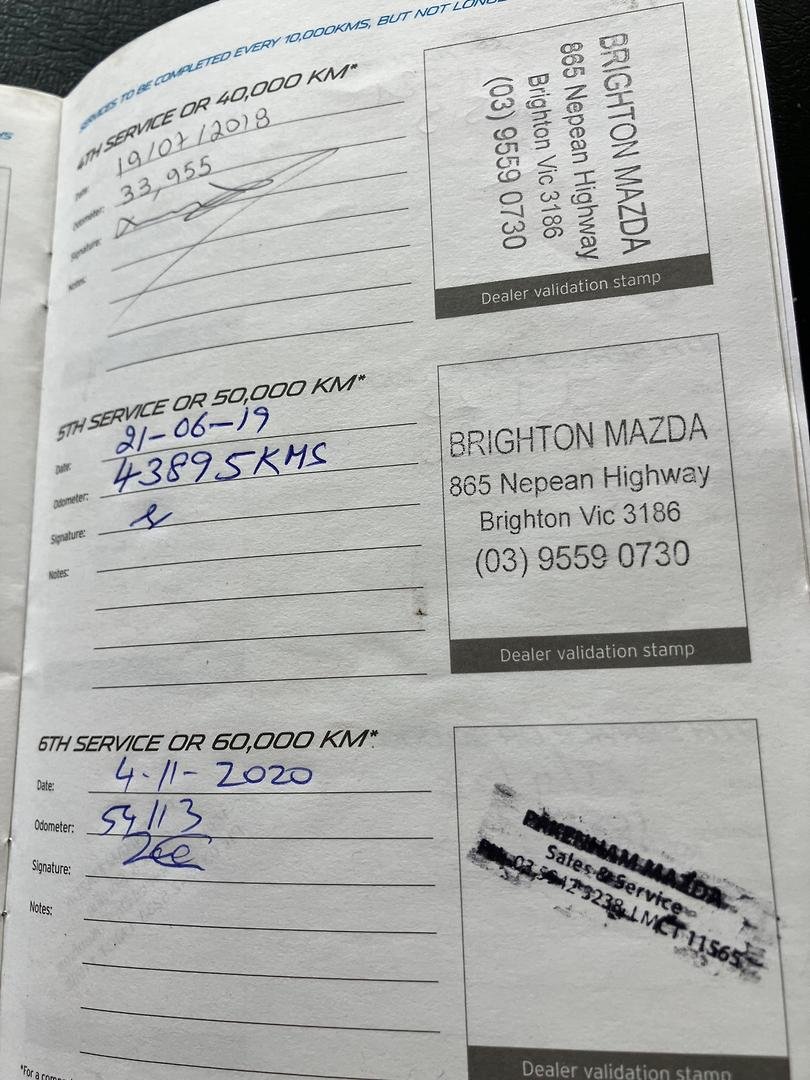 SERVICES TO BE COMPLETED EVERY 10,000KMS, BUT NOT
4TH SERVICE OR 40,000 KM*
Date: 19/07/2018
Odometer: 33,955
Signature:
Notes:
BRIGHTON MAZDA
865 Nepean Highway
Brighton Vic 3186
(03) 9559 0730
Dealer validation stamp
5TH SERVICE OR 50,000 KM*
Date: 21-06-19
Odometer: 43895KMS
Signature:
Notes:
BRIGHTON MAZDA
865 Nepean Highway
Brighton Vic 3186
(03) 9559 0730
Dealer validation stamp
6TH SERVICE OR 60,000 KM*
Date: 4-11-2020
Odometer: 54113
Signature:
Notes:
PAKENHAM MAZDA
Sales & Service
LMCT 11565
Dealer validation stamp
*For a